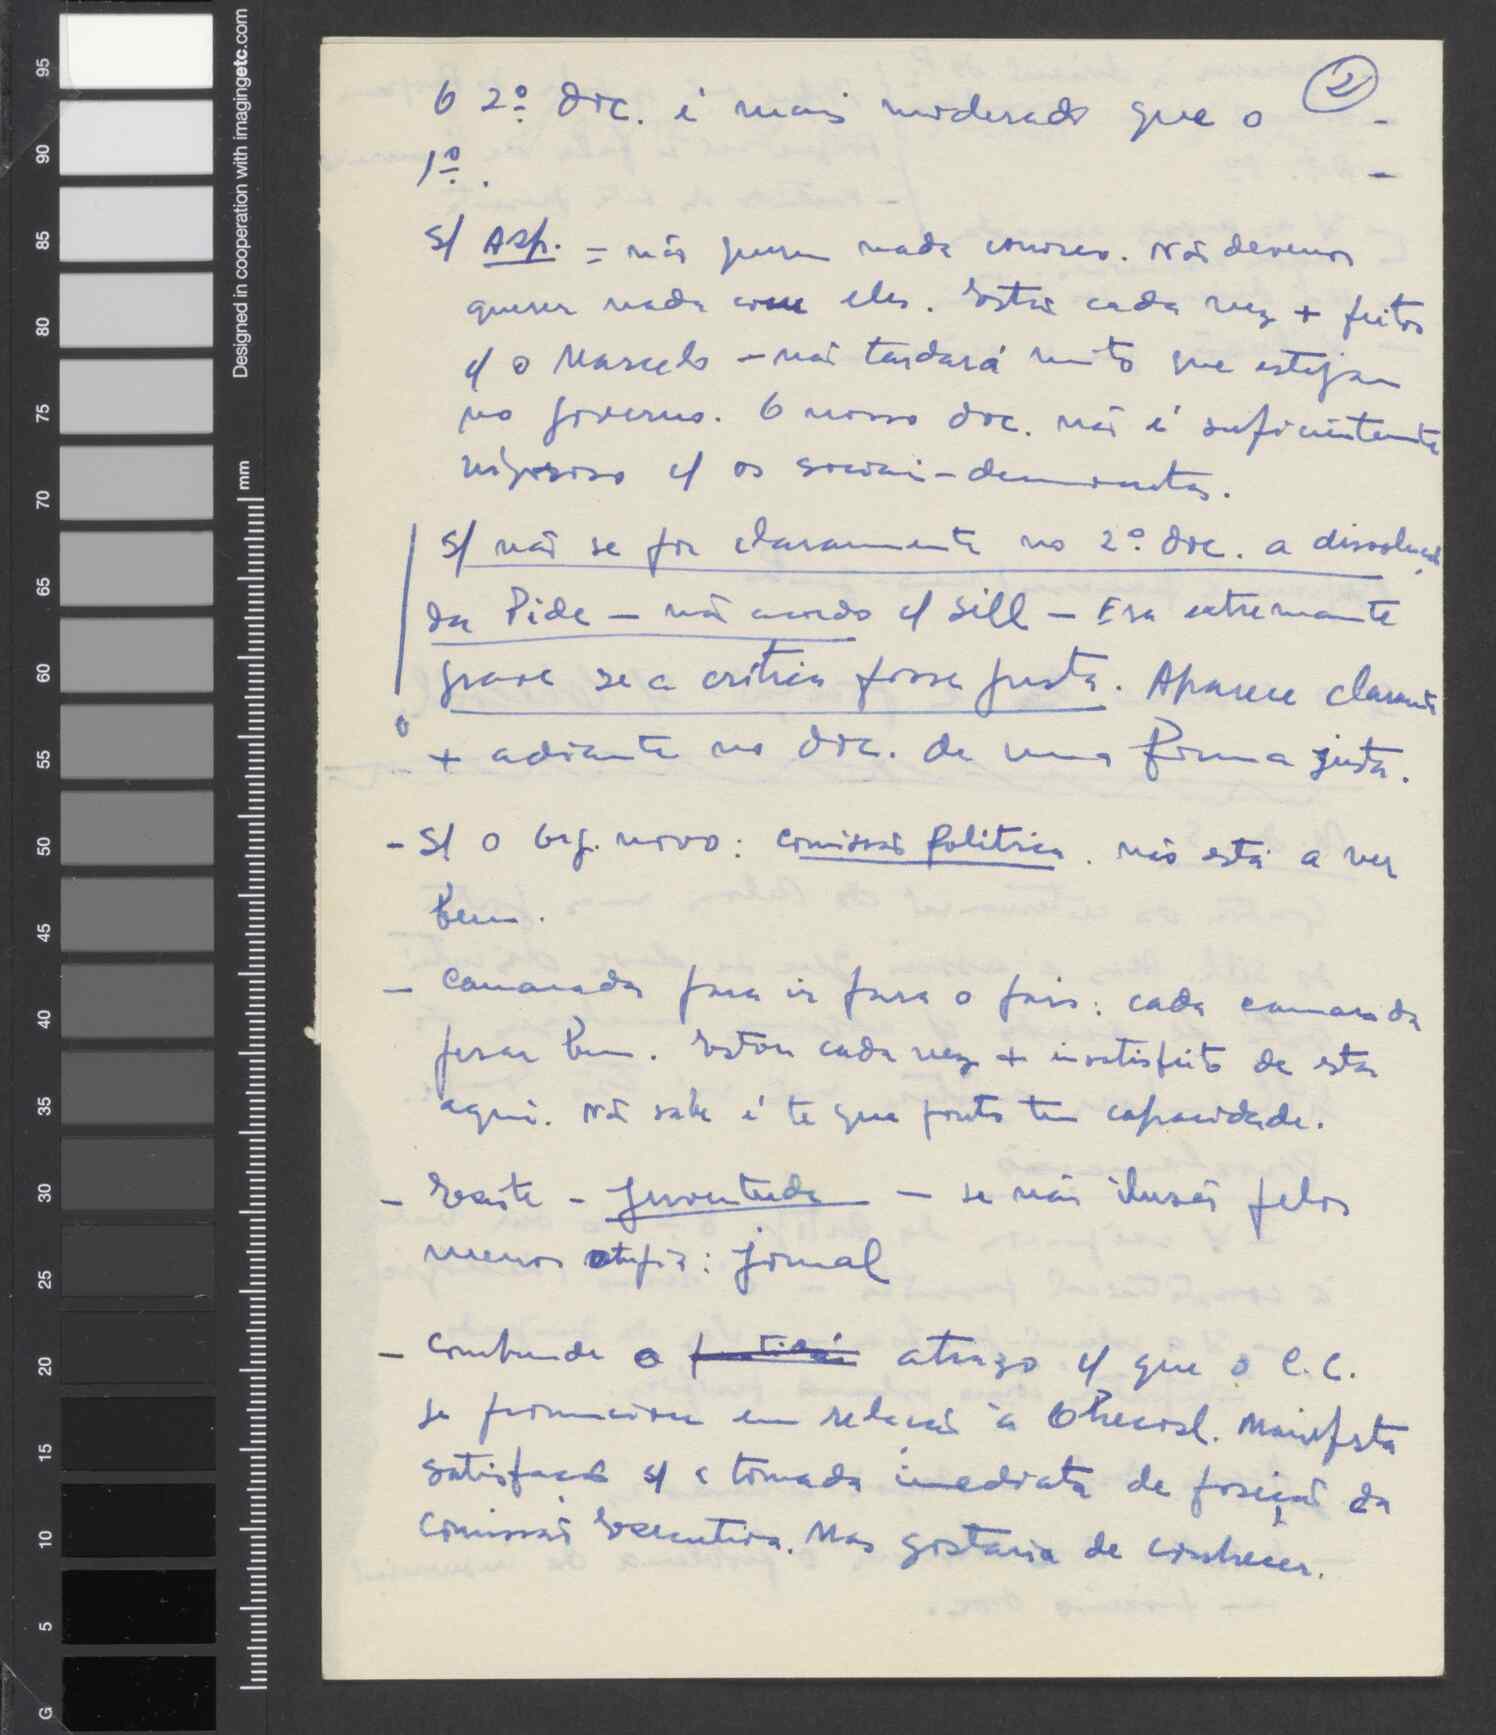 2
O 2º doc. é mais moderado que o -
1º. -
s/ ASP. = não querem nada conosco. Nós devemos
querer nada com eles. Estão cada vez + feitos
c/ o Marcelo - não tardará muito que estejam
no governo. O nosso doc. não é suficientemente
rigoroso c/ os sociais-democratas.
s/ não se pôr claramente no 2º doc. a dissolução
da Pide - não acordo c/ Sill - Era extremante
grave se a crítica fosse justa. Aparece claramente
+ adiante no doc. de uma forma justa.
- S/ o org. novo: comissão Política. não está a ver
bem.
- Camarada para ir para o país: cada camarada
pesar bem. Estou cada vez + insatisfeito de estar
aqui. Não sabe é te que ponto tem capacidade.
- Existe - Juventude - se não ilusão pelos
menos utopia: jornal
- Compreende o atrazo c/ que o C.C.
se pronunciou em relação à Checosl. Manifesta
satisfação s/ a tomada imediata de posição da
Comissão Executiva. Mas gostaria de conhecer.
Designed in cooperation with imagingetc.com
mm
95
90
85
80
75
70
65
60
55
50
45
40
35
30
25
20
15
10
5
G